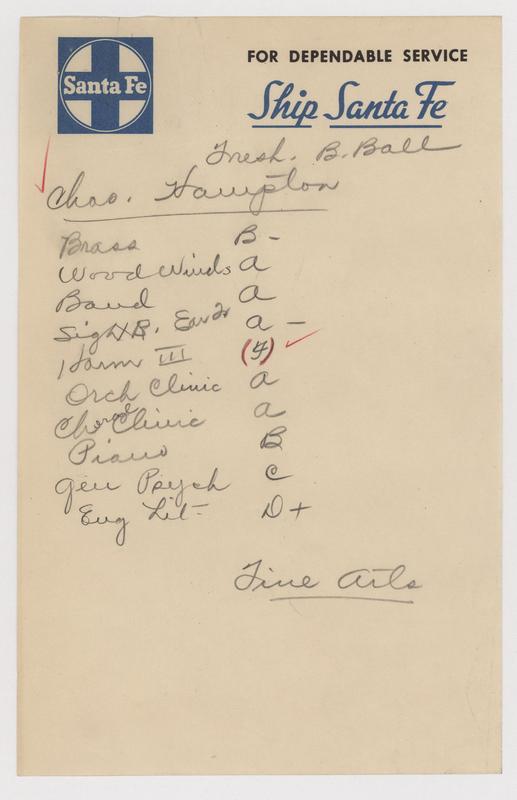 Santa Fe
FOR DEPENDABLE SERVICE
Ship Santa Fe
Fresh. B. Ball
Chas. Hampton
Brass B -
Wood Winds A
Band A
Sight R. Ear Tr A -
Harm III (F) ✓
Orch Clinic A
Choral Clinic A
Piano B
Gen Psych C
Eng Lit - D +
Fine Arts